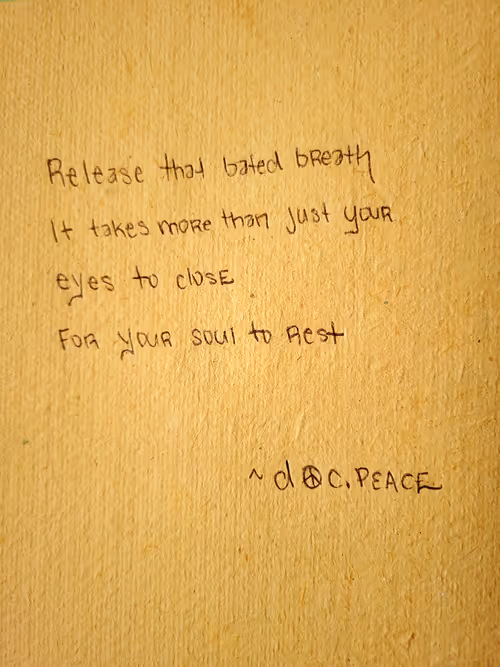 Release that bated breath
It takes more than just your
eyes to close
For your soul to rest
~ d☮c. PEACE